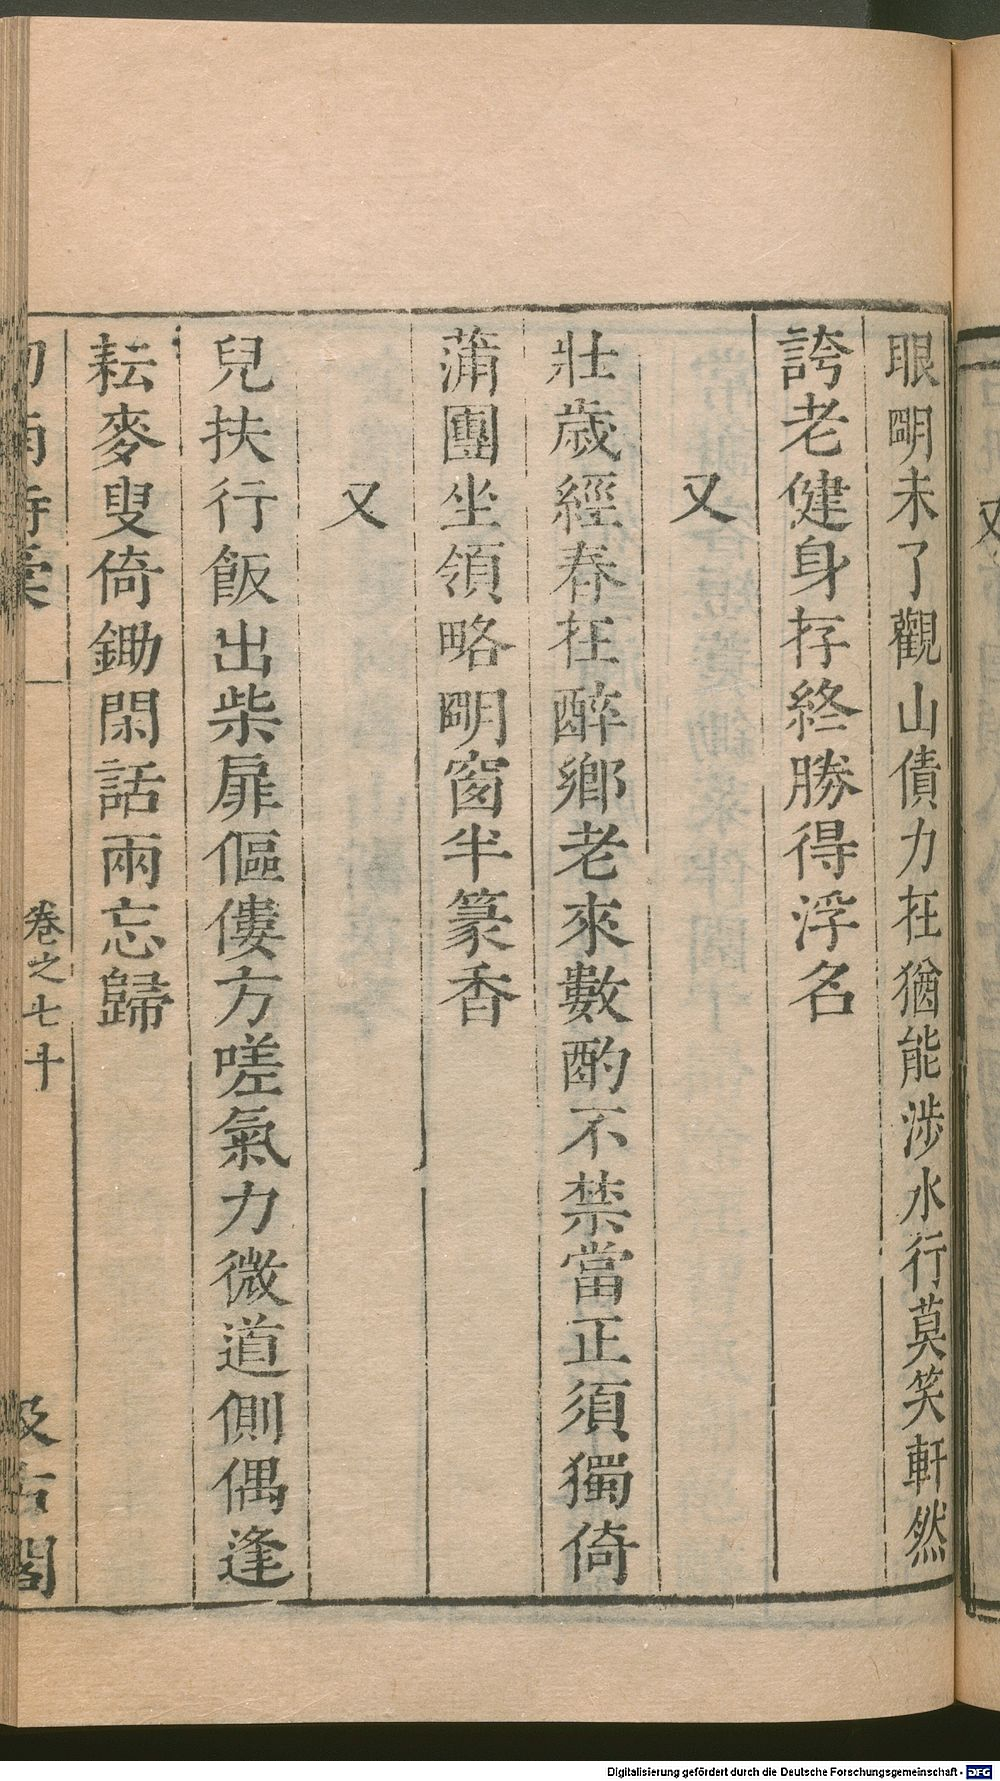 眼明未了觀山債力在猶能涉水行莫笑軒然
誇老健身存終勝得浮名
又
壯歲經春在醉鄉老來數酌不禁當正須獨倚
蒲團坐領略明窗半篆香
又
兒扶行飯出柴扉傴僂方嗟氣力微道側偶逢
耘麥叟倚鋤閑話兩忘歸
劍南詩稾
卷之七十
汲古閣
又
Digitalisierung gefördert durch die Deutsche Forschungsgemeinschaft - DFG